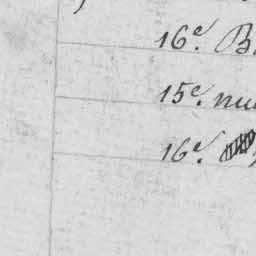 16e. B
15e. nu
16e.